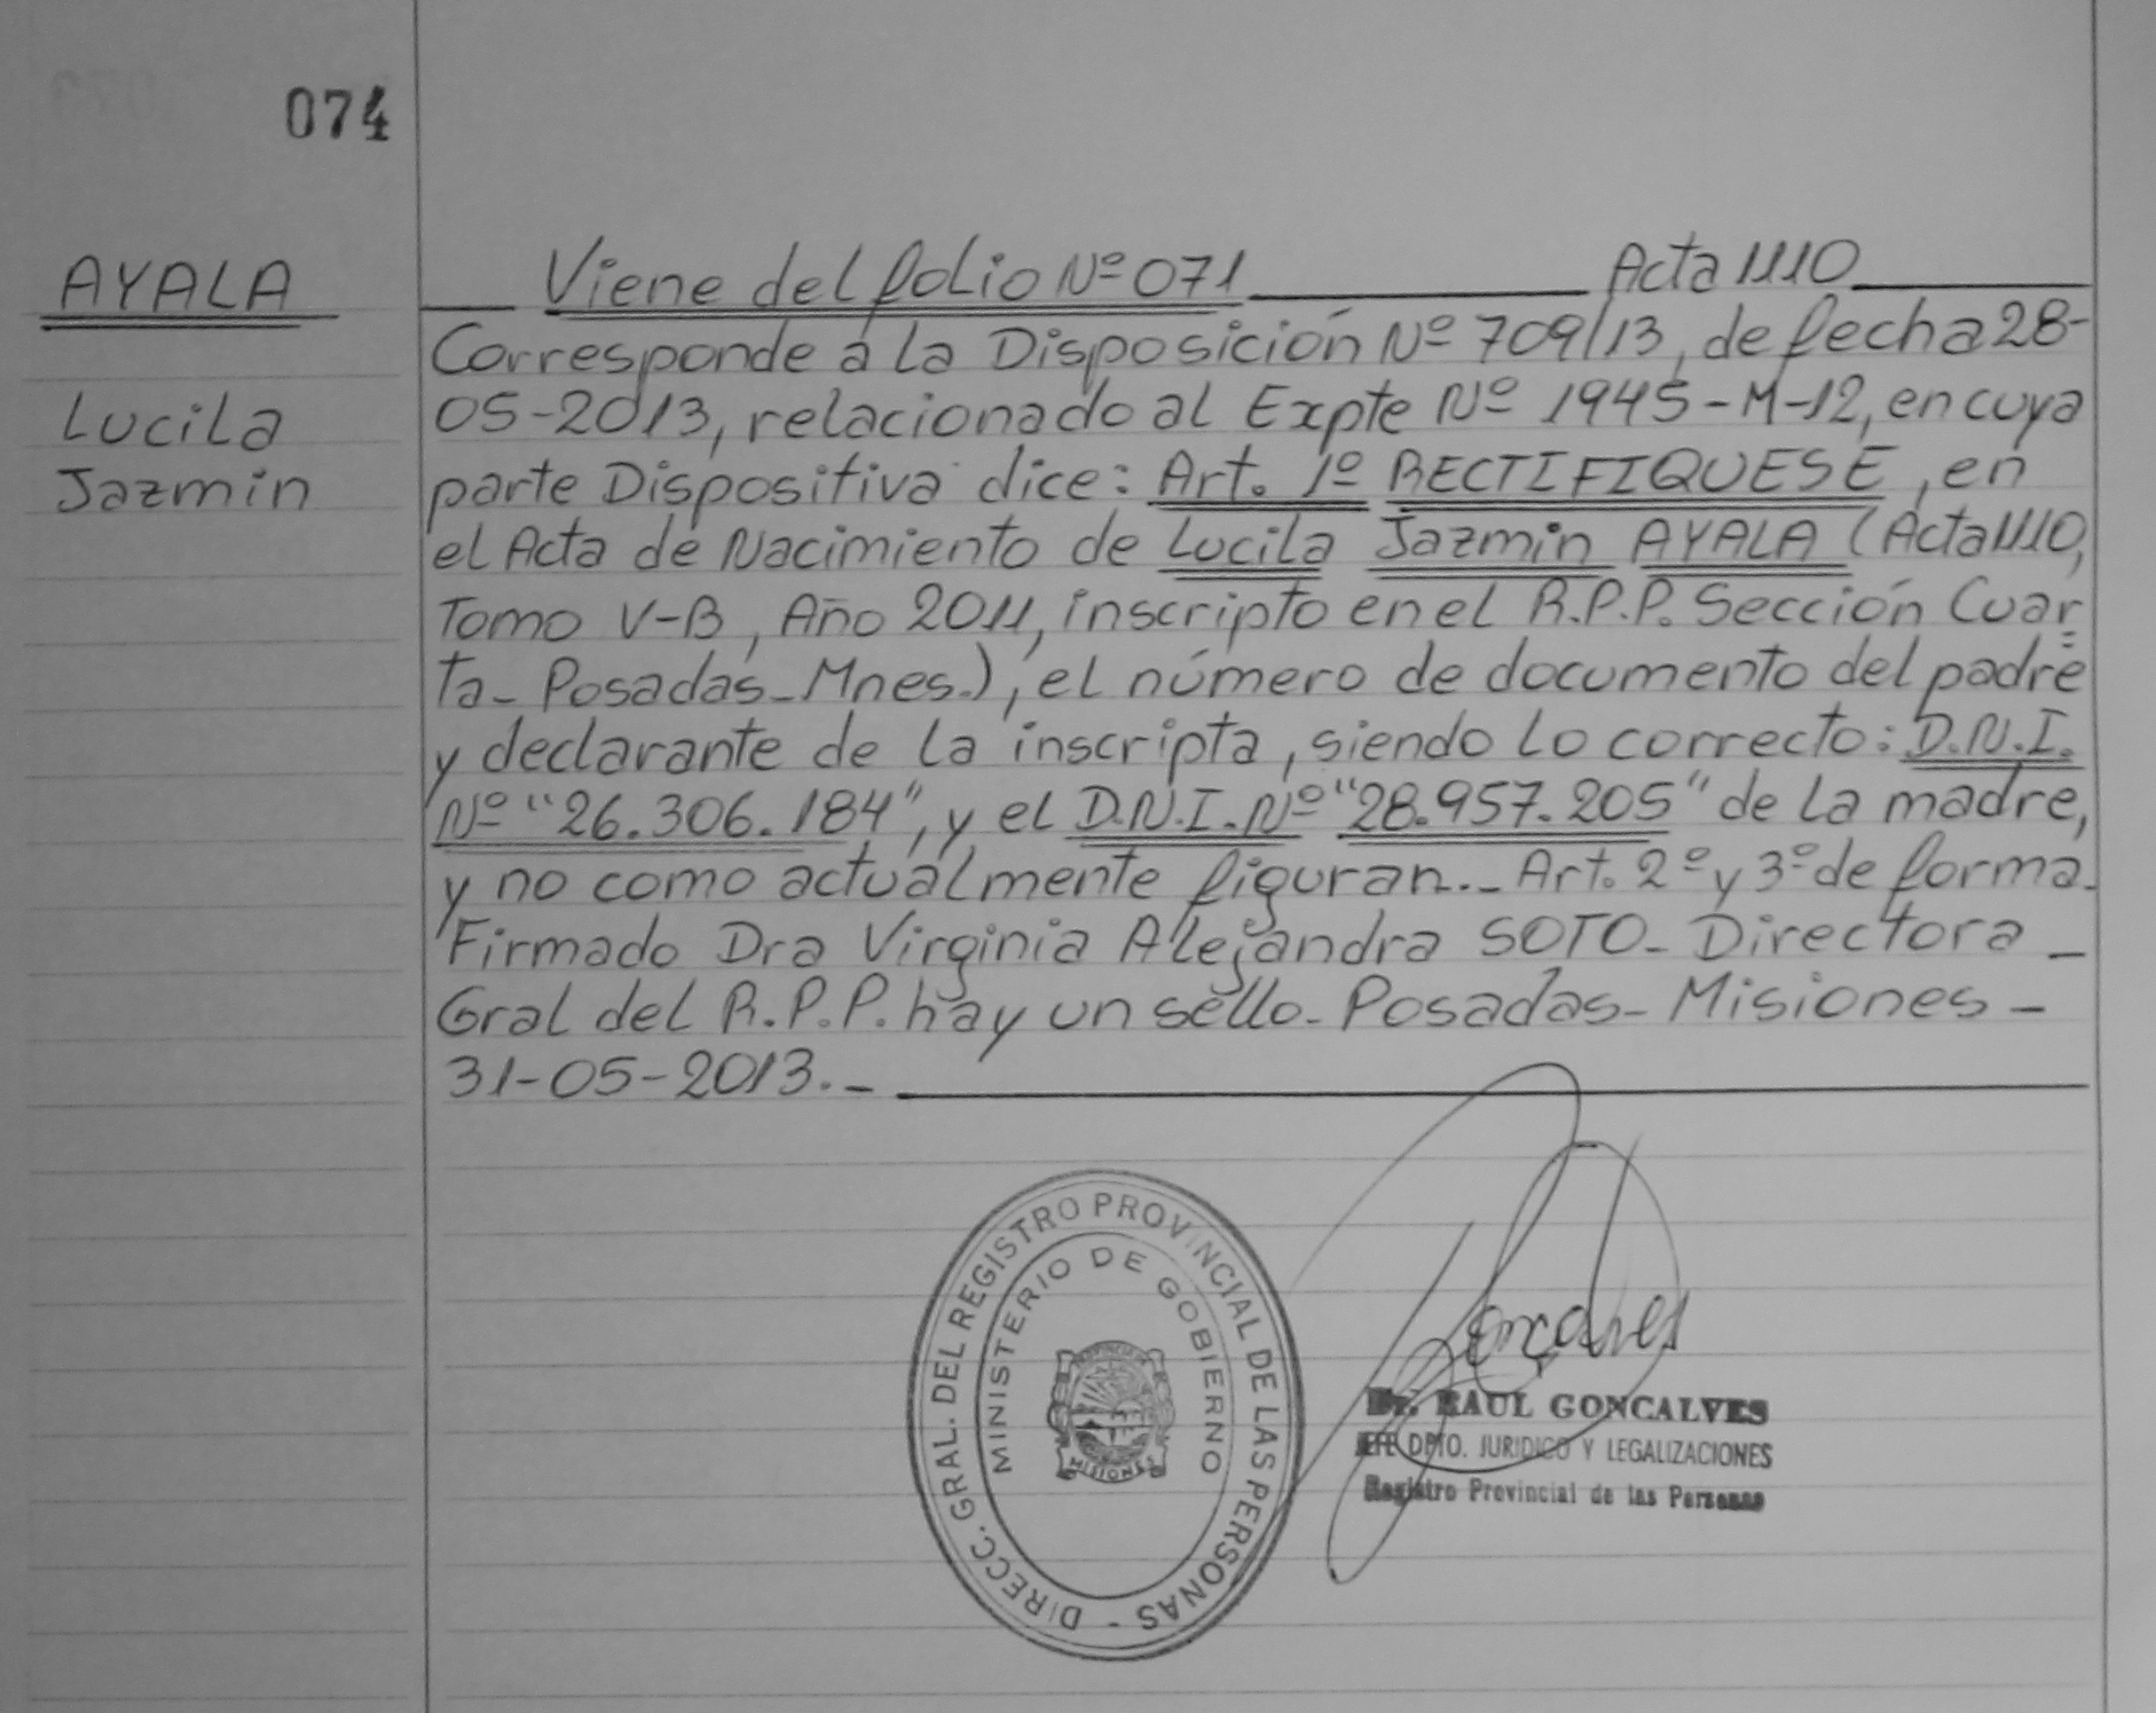 074
AYALA
Lucila
Jazmin
Viene del folio Nº 071 Acta 1110
Corresponde a la Disposición Nº 709/13, de fecha 28-
05-2013, relacionado al Expte Nº 1945-M-12, en cuya
parte Dispositiva dice: Art. 1º RECTIFIQUESE, en
el Acta de Nacimiento de Lucila Jazmin AYALA (Acta 1110,
Tomo V-B, Año 2011, inscripto en el R.P.P. Sección Cuar
ta- Posadas-Mnes.), el número de documento del padre
y declarante de la inscripta, siendo lo correcto: D.N.I.
Nº "26.306.184", y el D.N.I. Nº "28.957.205" de la madre,
y no como actualmente figuran.- Art. 2º y 3º de forma.
Firmado Dra Virginia Alejandra SOTO- Directora -
Gral del R.P.P. hay un sello- Posadas- Misiones -
31-05-2013.-
DIRECC. GRAL. DEL REGISTRO PROVINCIAL DE LAS PERSONAS -
MINISTERIO DE GOBIERNO
PROVINCIA DE
MISIONES
Gonçalves
Dr. RAUL GONCALVES
JEFE DPTO. JURIDICO Y LEGALIZACIONES
Registro Provincial de las Personas